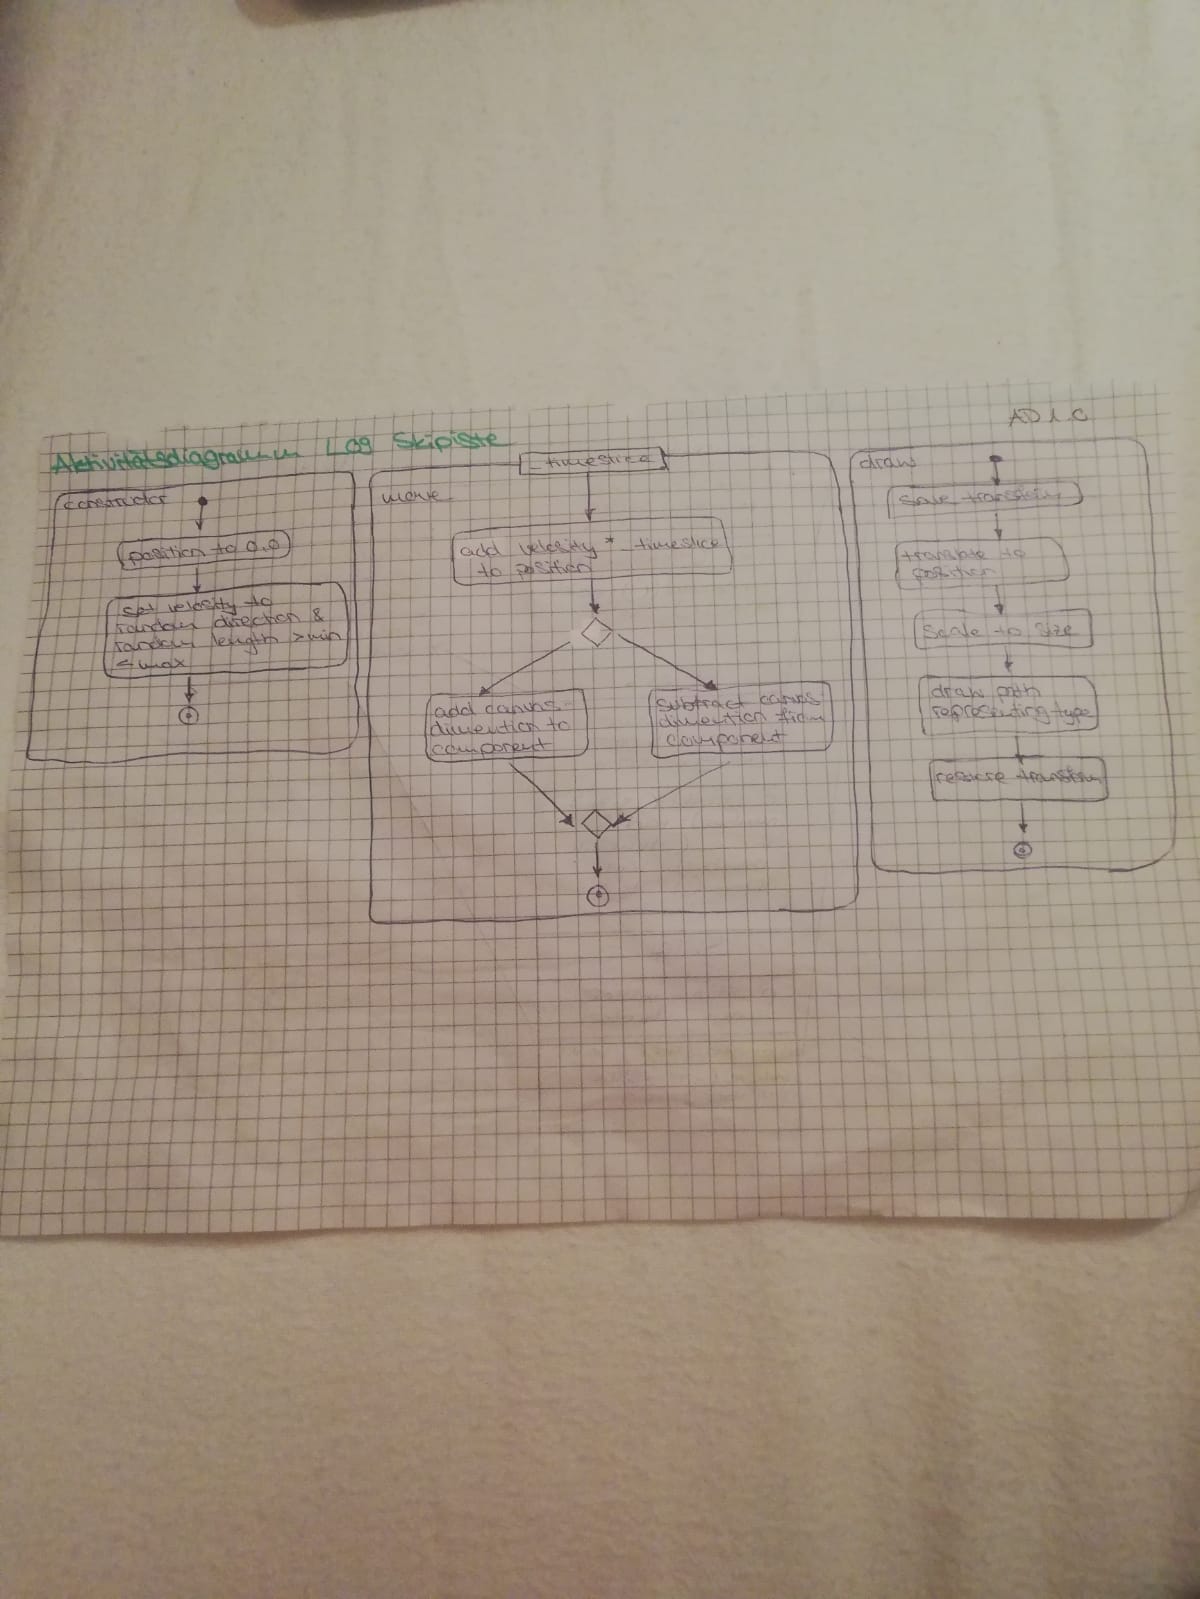 AD 1.0
Aktivitätsdiagramm L09 Skipiste
constructor
position to 0.0
set velosity to
random direction &
random length >min
<max
_timeslice
move
add velosity * _timeslice
to position
add canvas
dimention to
component
subtract canvas
dimention from
component
draw
save transform
translate to
position
scale to size
draw path
representing type
restore transform